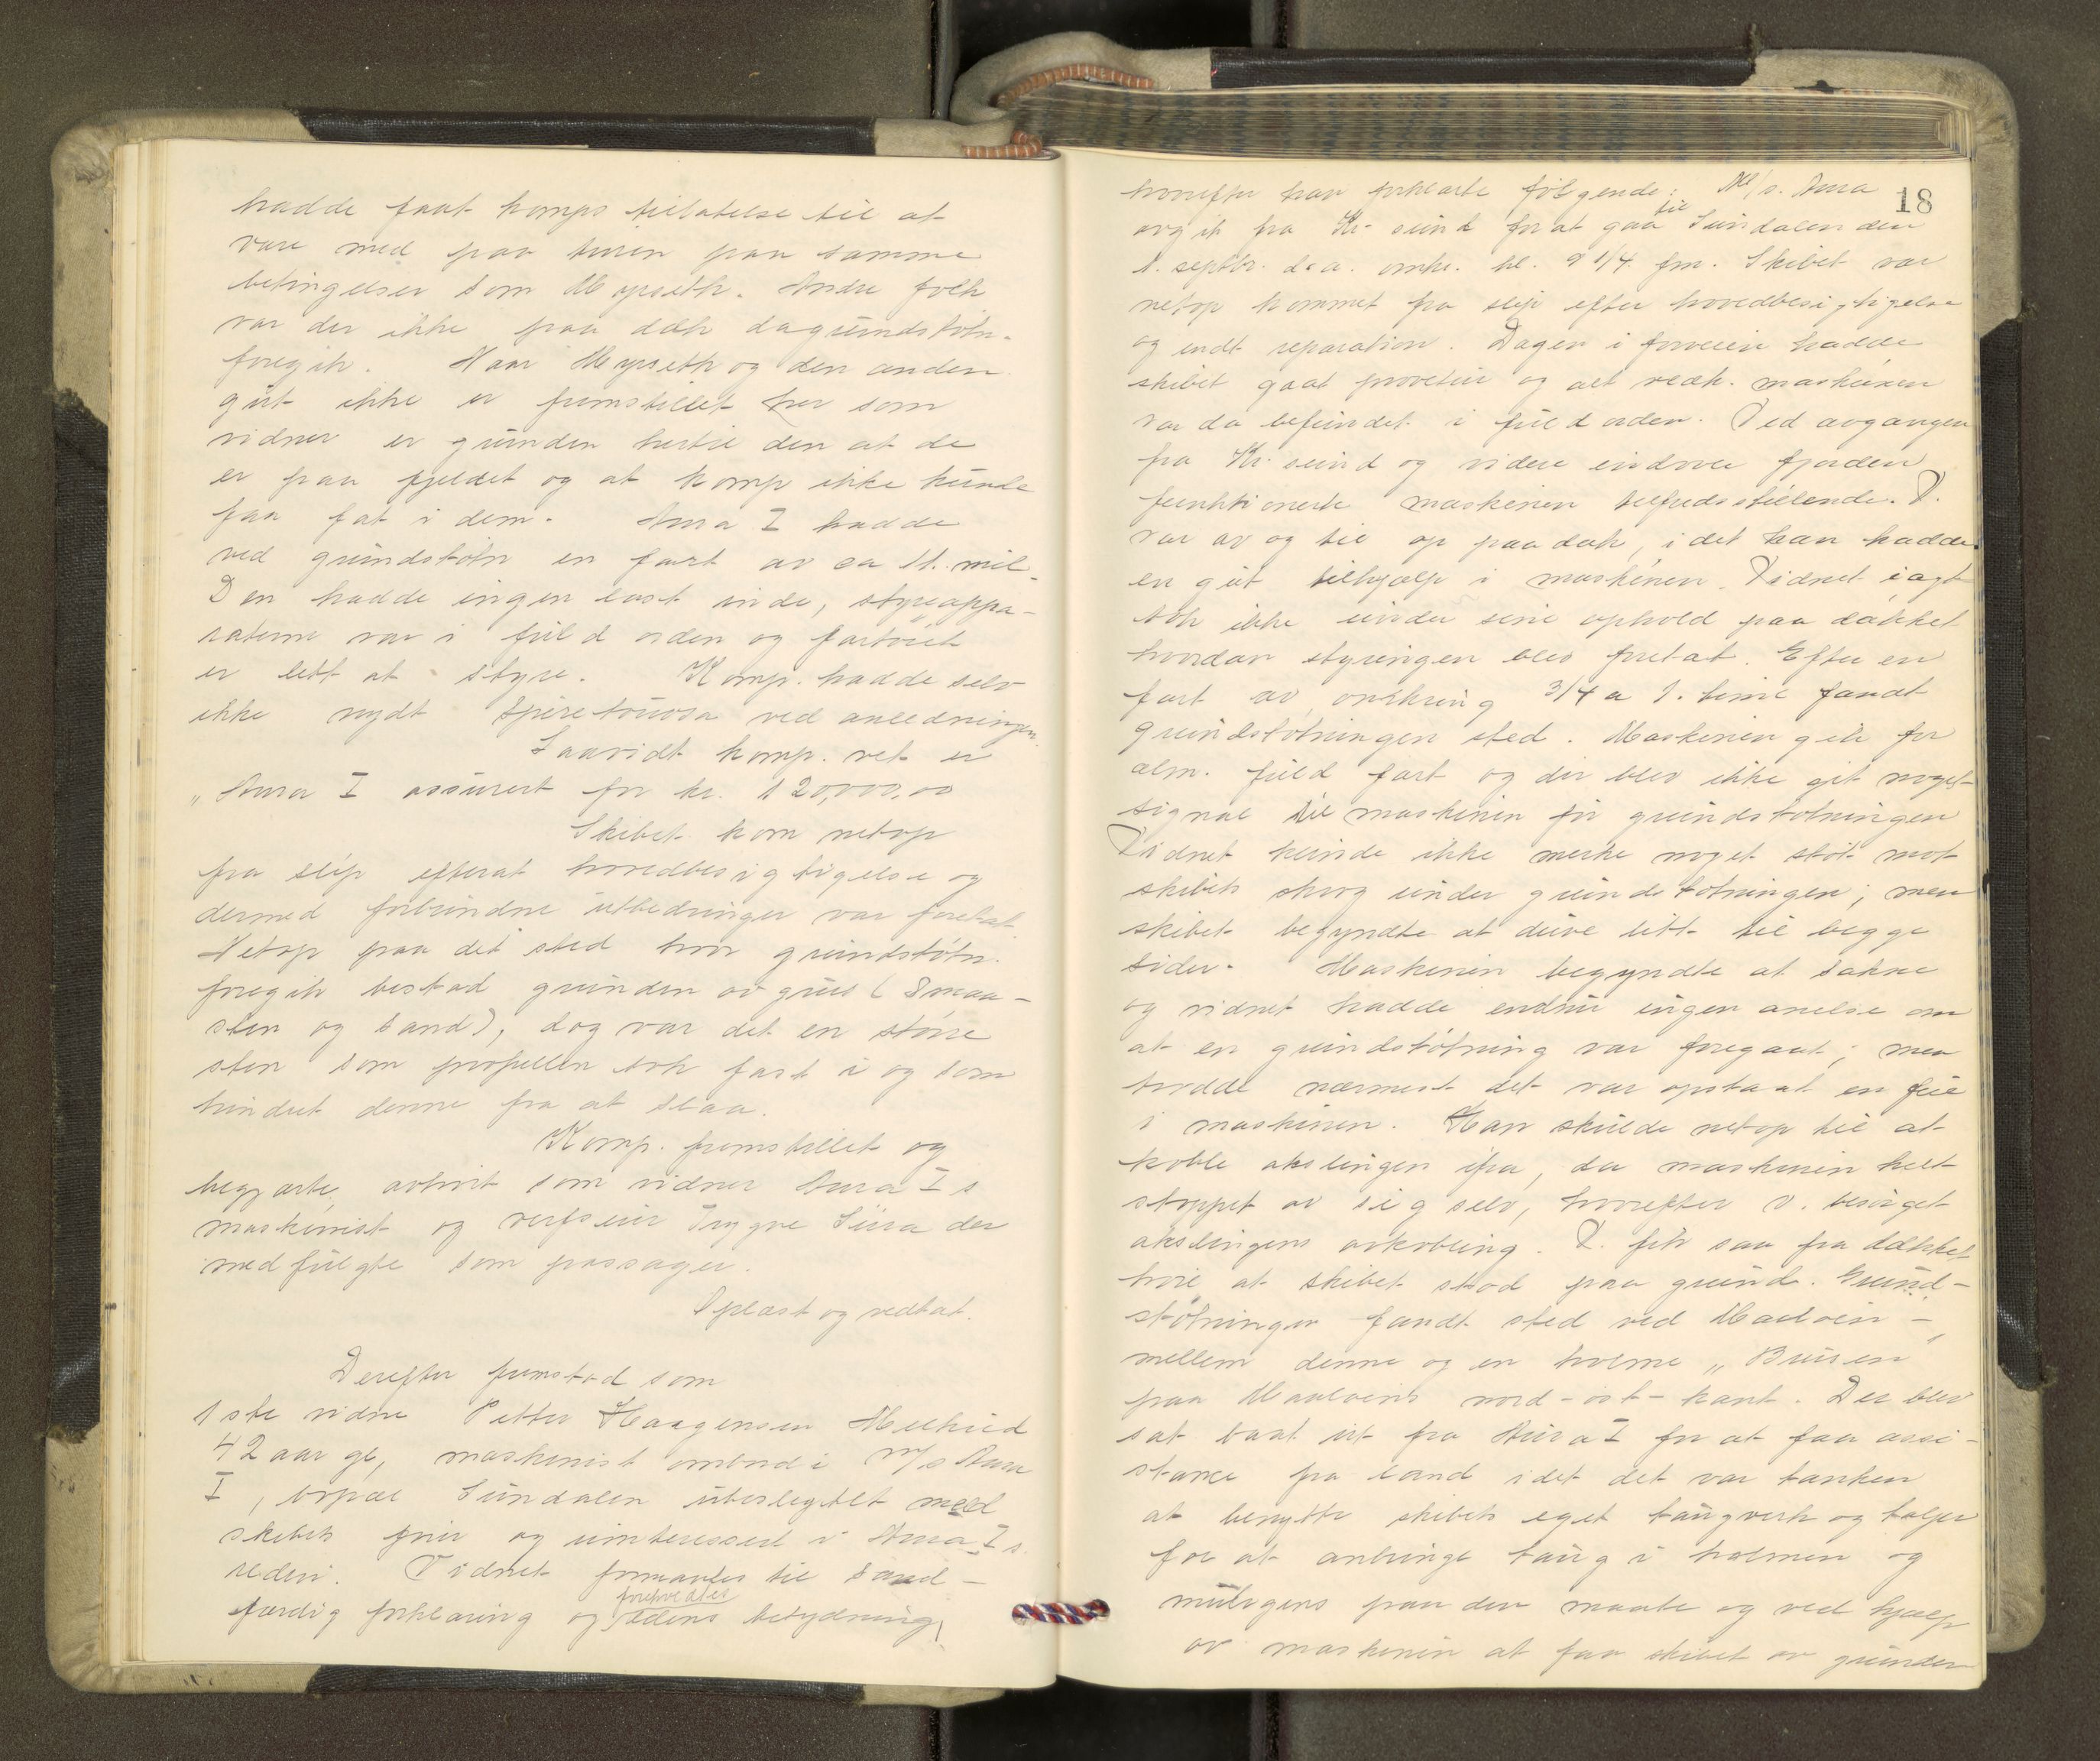 hadde faat komps tillatelse til at
være med paa turen paa samme
betingelser som Myrseth. Andre folk
var der ikke paa dæk da grundstøtn.
foregik. Naar Myrseth og den anden
gut ikke er fremstillet her som
vidner er grunden hertil den at de
er paa fjeldet og at komp ikke kunde
faa fat i dem. Aura I hadde
ved grundstøtn en fart av ca 11. mil.
Den hadde ingen last inde, styreappa-
raterne var i fuld orden og fartøiet
er lett at styre. Komp. hadde selv
ikke nydt spiretuosa ved anledningen.
Saavidt komp. vet er
„Aura I assurert for kr. 120,000,00
Skibet kom netop
fra slip efterat hovedbesigtigelse og
dermed forbundne utbedringer var foretat.
Netop paa det sted hvor grundstøtn.
foregik bestod grunden av grus (Smaa-
sten og sand), dog var det en større
sten som propellen tok fast i og som
hindret denne fra at slaa.
Komp. fremstillet og
begjærte avhørt som vidner Aura I s
maskinist og verkseier Trygve Sura der
medfulgte som passager.
Oplæst og vedtat.
Derefter fremstod som
1ste vidne Petter Haagensen
42 aar gl, maskinist ombord i M/s Aura
I, bopæl Sundalen ubeslegtet med
skibets fører og uinteressert i Aura I s
rederi. Vidnet formantes til sand-
færdig forklaring og foreholdtes edens betydning,
18
hvorefter han forklarte følgende: M/s. Aura
avgik fra Kr. sund for at gaa til Sundalen den
1. septbr. d.a. omkr. kl. 9 1/4 fm. Skibet var
netop kommet fra slip efter hovedbesigtigelse
og endt reparation. Dagen i forveien hadde
skibet gaat prøvetur og alt vedk. maskinen
var da befundet i fuld orden. Ved avgangen
fra Kr. sund og videre indover fjorden
funktionerte maskinen tilfredsstillende. V.
var av og til op paa dæk, idet han hadde
en gut tilhjælp i maskinen. Vidnet iagt
tok ikke under sine ophold paa dækket
hvordan styringen blev foretat. Efter en
fart av omkring 3/4 a 1. time fandt
grundstøtningen sted. Maskinen gik for
alm. fuld fart og der blev ikke git noget
signal til maskinen før grundstøtningen
Vidnet kunde ikke merke noget støt mot
skibets skrog under grundstøtningen; men
skibet begyndte at duve litt til begge
sider. Maskinen begyndte at sakne
og vidnet hadde endnu ingen anelse om
at en grundstøtning var foregaat; men
trodde nærmest det var opstaat en feil
i maskinen. Han skulde netop til at
koble akslingen ifra, da maskinen helt
stoppet av sig selv, hvorefter v. besørget
akslingens avkobling. V. fik saa fra dækket
høre at skibet stod paa grund. Grund-
støtningen fandt sted ved Maaløen -
mellem denne og en holme „Buisen"
paa Maaløens nord-øst-kant. Der blev
sat baat ut fra Aura I for at faa assi-
stance fra land idet det var tanken
at benytte skibets eget taugverk og taljer
for at anbringe taug i holmen og
muligens paa den maate og ved hjælp
av maskinen at faa skibet av grunden